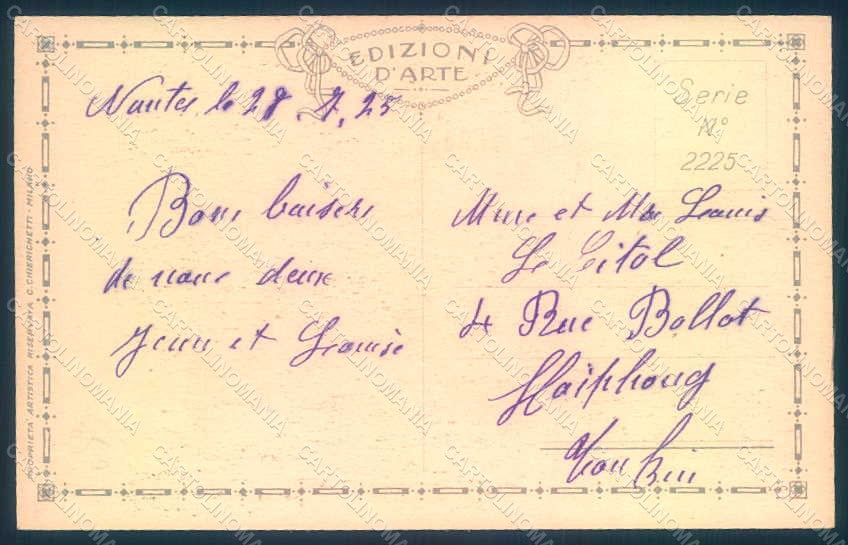 EDIZIONI
D'ARTE
Nantes le 28.7.25
Serie
N°
2225
Bons baisers
de nous deux
Jean et Louise
Mme et Mr Louis
Le Citol
4 Rue Bollot
Haïphong
Tonkin
PROPRIETÀ ARTISTICA RISERVATA G. CHIERICHETTI - MILANO
CARTOLINOMANIA